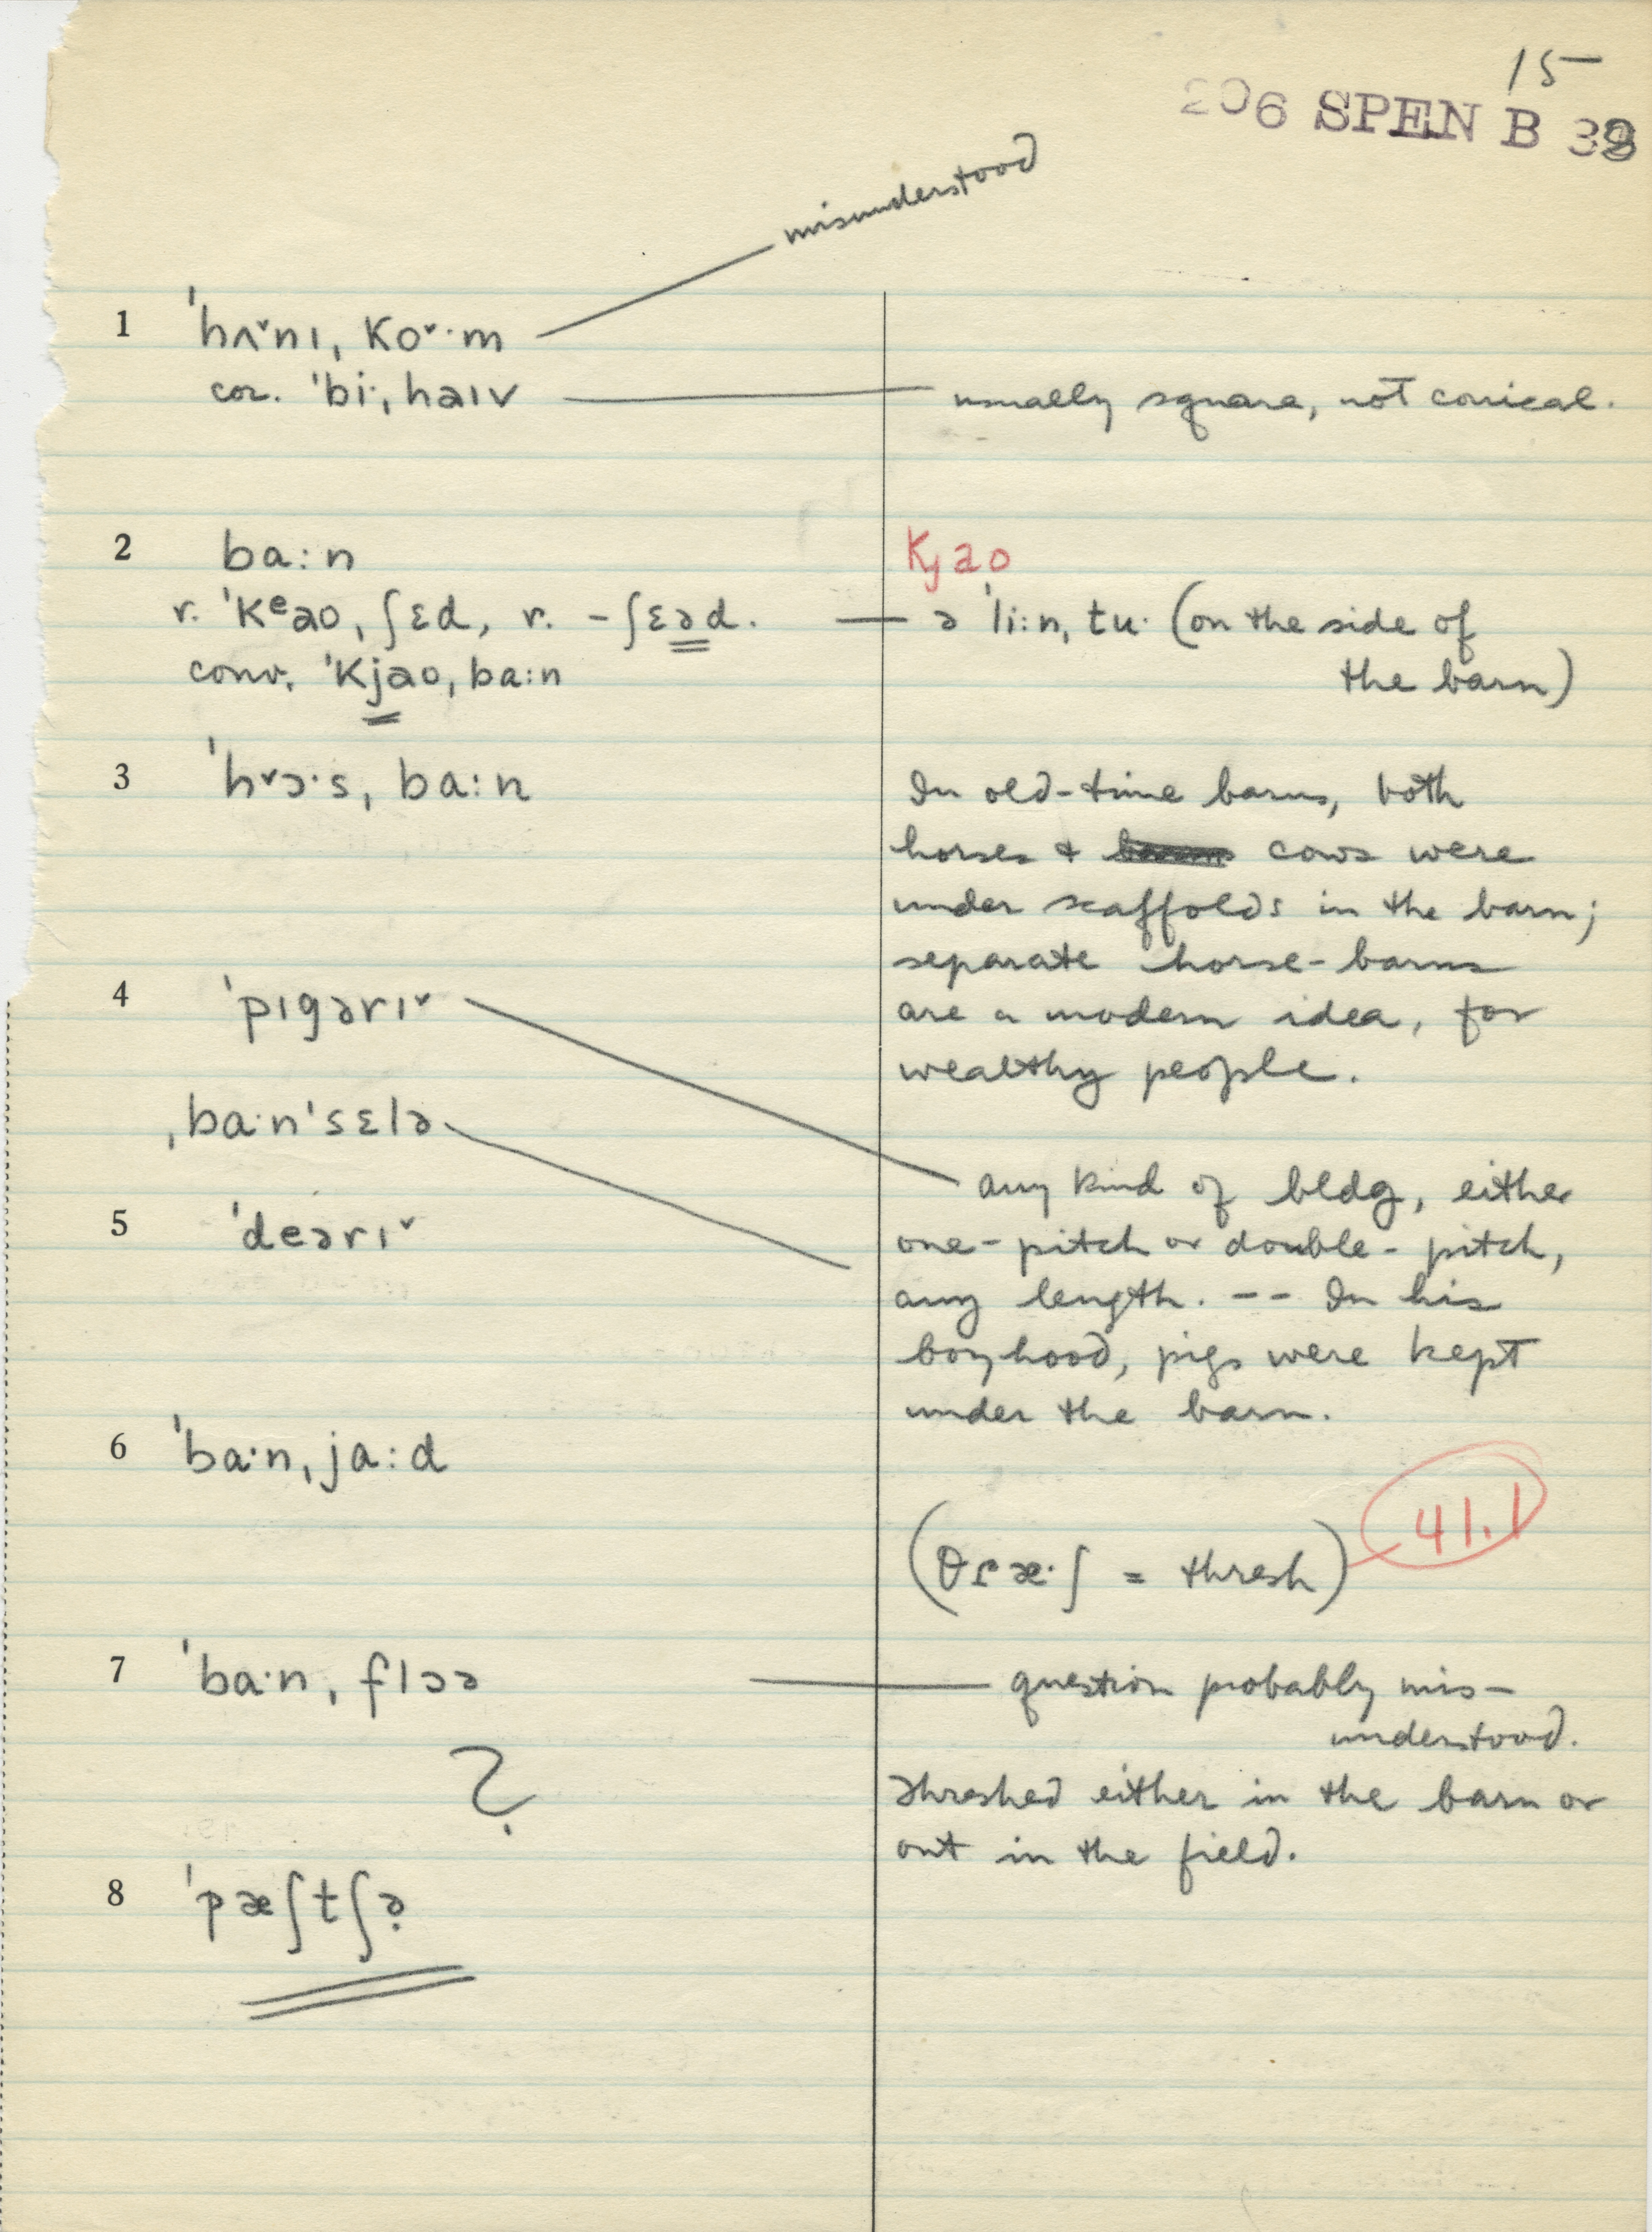 15
206 SPEN B 38
misunderstood
1 ˈhʌ˅nɪ, ko˅·m
cor. ˈbi·ˌhaɪv — usually square, not conical.
2 ba:n
Kjao
r. ˈkᵉaoˌʃɛd, r. -ʃɛəd. — ə ˈli:nˌtu· (on the side of
the barn)
conv. ˈkjaoˌba:n
3 ˈh˅ɔ·sˌba:n
In old-time barns, both
horses + cows were
under scaffolds in the barn;
separate horse-barns
are a modern idea, for
wealthy people.
4 ˈpɪgərɪ˅
ˌba·nˈsɛlə
any kind of bldg, either
one-pitch or double-pitch,
any length. -- In his
boyhood, pigs were kept
under the barn.
5 ˈdeərɪ˅
6 ˈba·nˌja:d
(θɾæ·ʃ = thresh) 41.1
7 ˈba·nˌflɔə — question probably mis-
understood.
?
Threshed either in the barn or
out in the field.
8 ˈpæʃtʃə